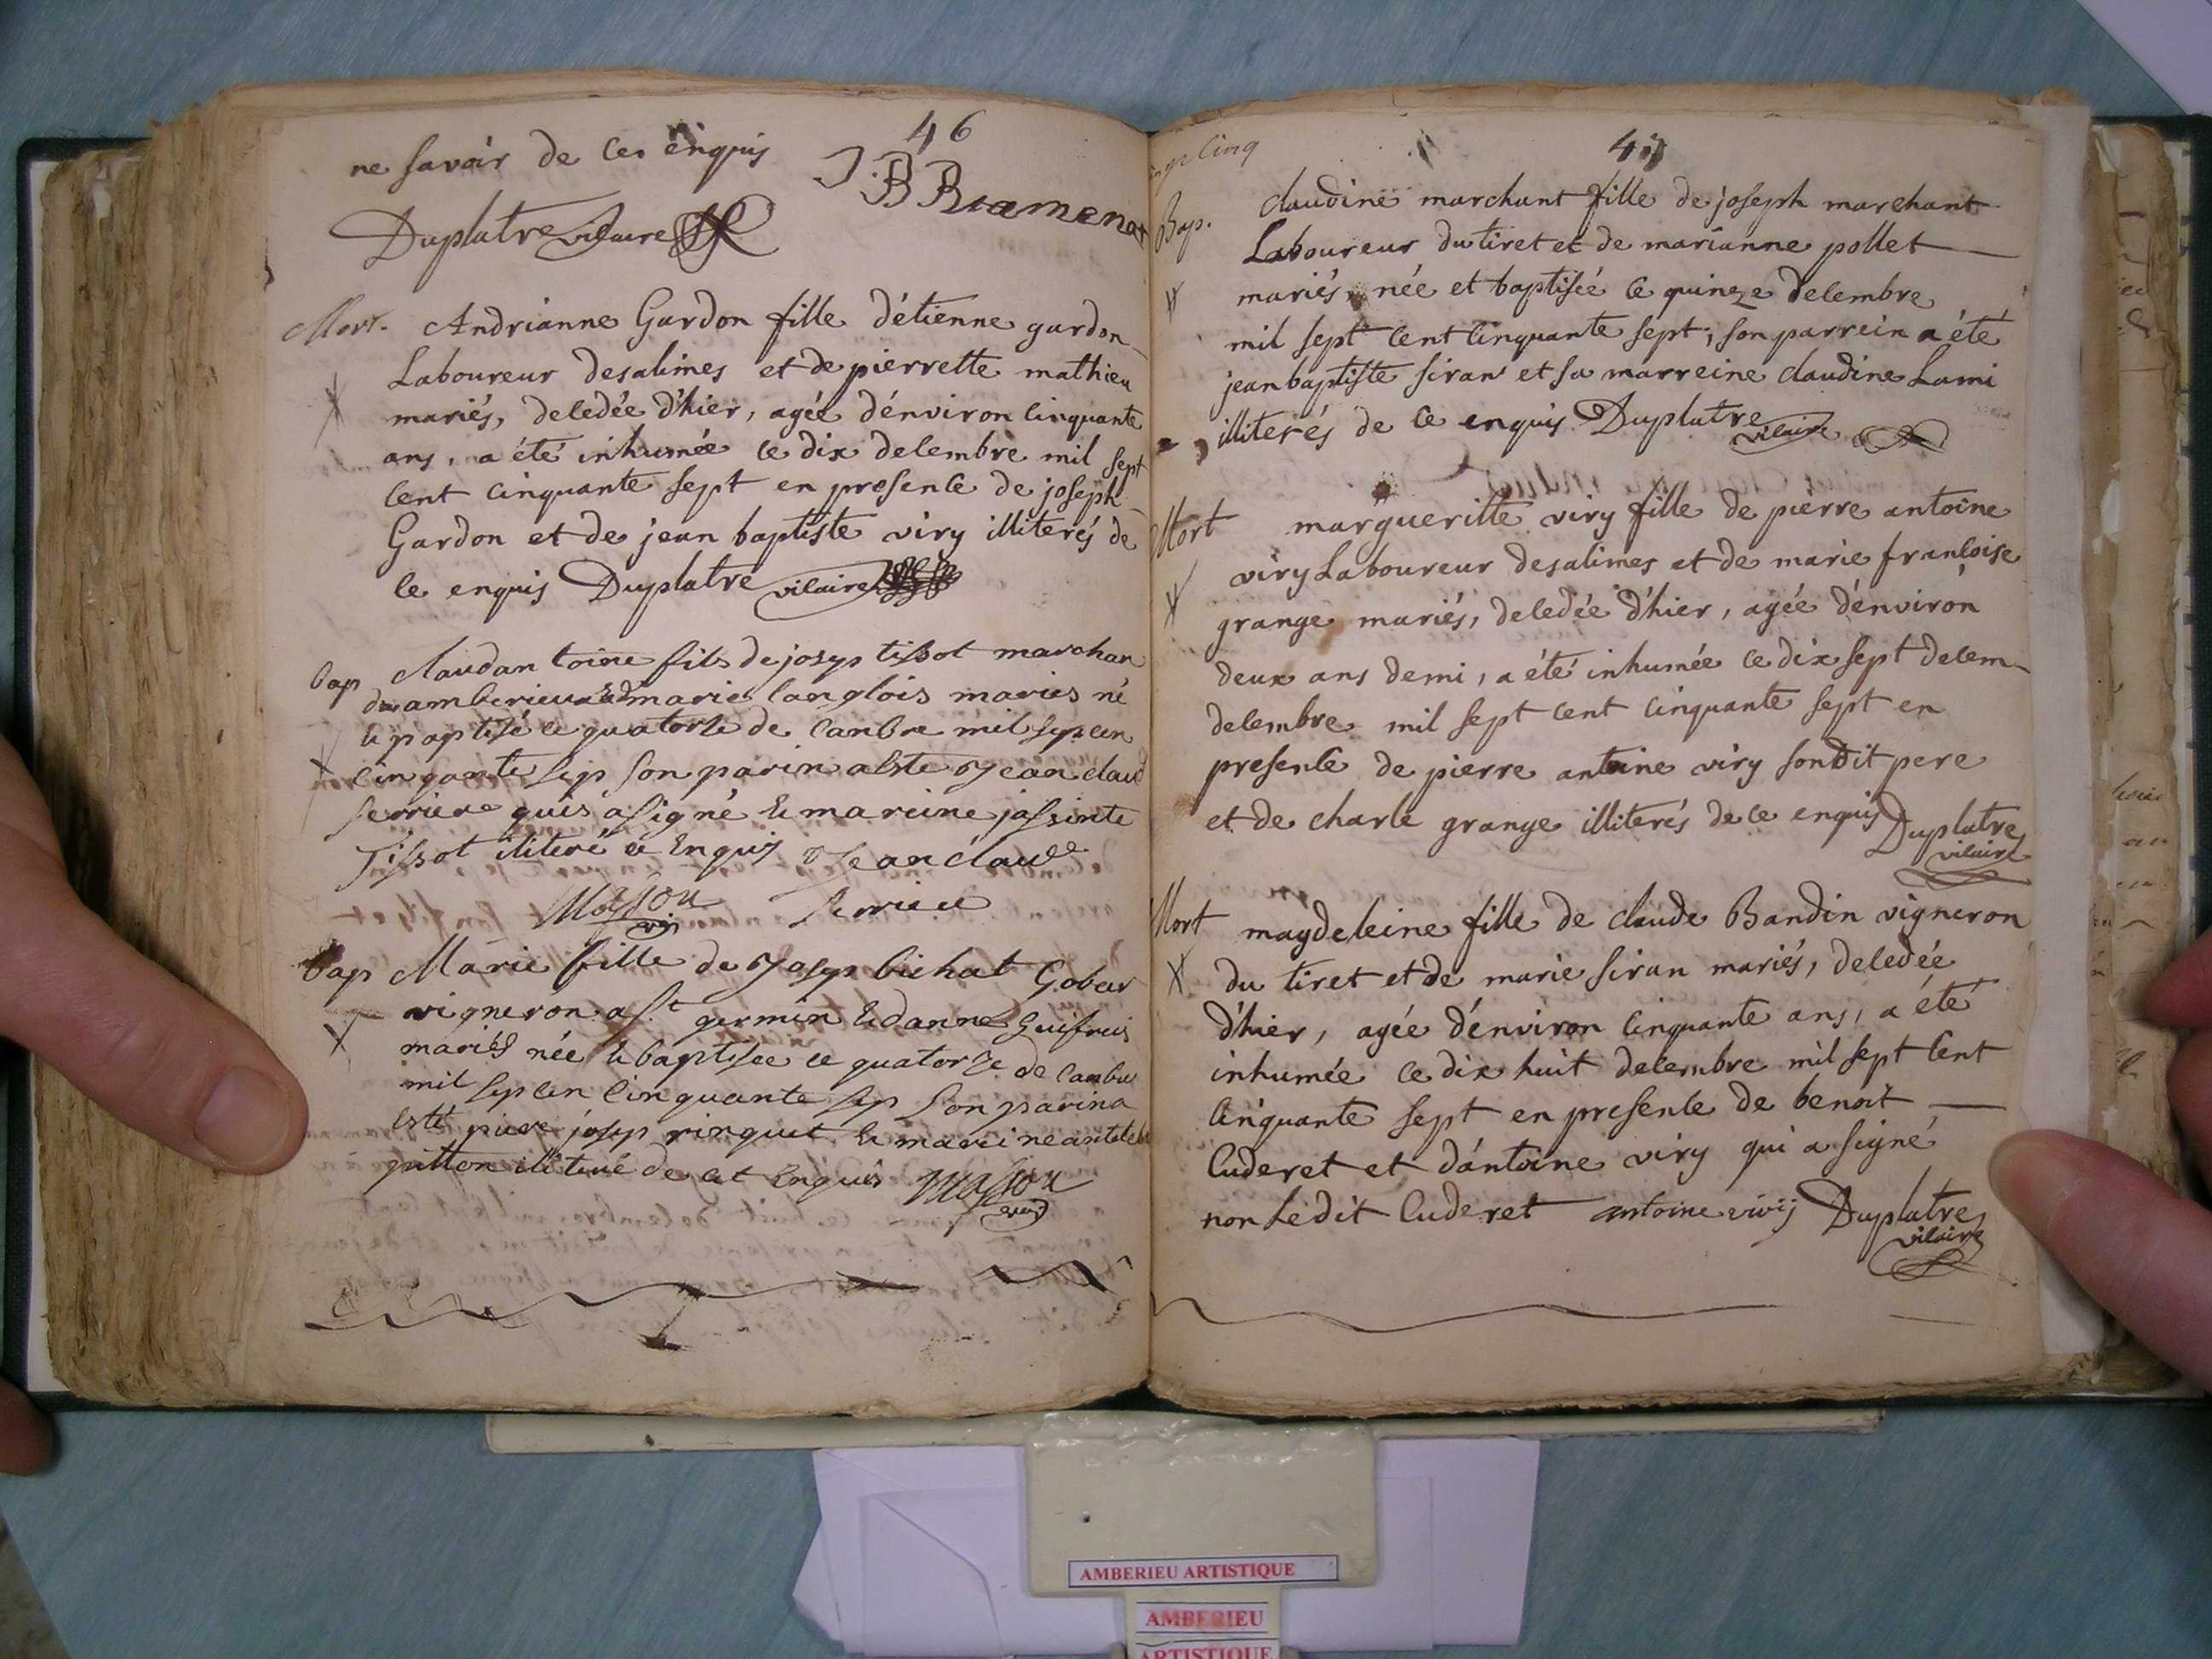 46
ne savoir de ces enquis
J. B Bramenat
Duplatre vicaire
Mort. Andrianne Gardon fille d'étienne gardon
Laboureur desalimes et de pierrette mathieu
mariés, decedée d'hier, agée d'énviron cinquante
ans, a été inhumée ce dix decembre mil sept
cent cinquante sept en presence de joseph
Gardon et de jean baptiste viry illiterés de
ce enquis Duplatre vicaire
bap claudantoine fils de josep tissot marchan
amberieux marie langlois maries né
e paptisé le quatorse de canbre mil sep cen
cinqante sep son parin a este Jean claud
serriere quis a signé e mareine jassinte
Tissot iliteré ce enquis Jean claude
Masson vic serriere
bap Marie fille de Josep bichat Gobet
vigneron a st germin e danne Guifreis
mariés née e baptisee ce quatorze de canbre
mil sep cen cinquante sep son parin a
esté piere josep ringuet e mareine
pitton illiteré de cet enquis Masson
vic
47
Bap. claudine marchant fille de joseph marchant
Laboureur du tiret et de marianne pollet
mariés, née et baptisée ce quinze decembre
mil sept cent cinquante sept; son parrein a été
jean baptiste siran et sa marreine claudine Lami
illiterés de ce enquis Duplatre
vicaire
Mort margueritte viry fille de pierre antoine
viry Laboureur desalimes et de marie francoise
grange mariés, decedée d'hier, agée d'énviron
deux ans demi, a été inhumée ce dix sept decem-
decembre mil sept cent cinquante sept en
presence de pierre antoine viry sondit pere
et de charle grange illiterés de ce enquis Duplatre
vicaire
Mort magdeleine fille de claude Bandin vigneron
du tiret et de marie siran mariés, decedée
d'hier, agée d'énviron cinquante ans, a été
inhumée ce dix huit decembre mil sept cent
cinquante sept en presence de benoit
Cuderet et d'antoine viry qui a signé
non Ledit Cuderet antoine virij Duplatre
vicaire
AMBERIEU ARTISTIQUE
AMBERIEU
ARTISTIQUE